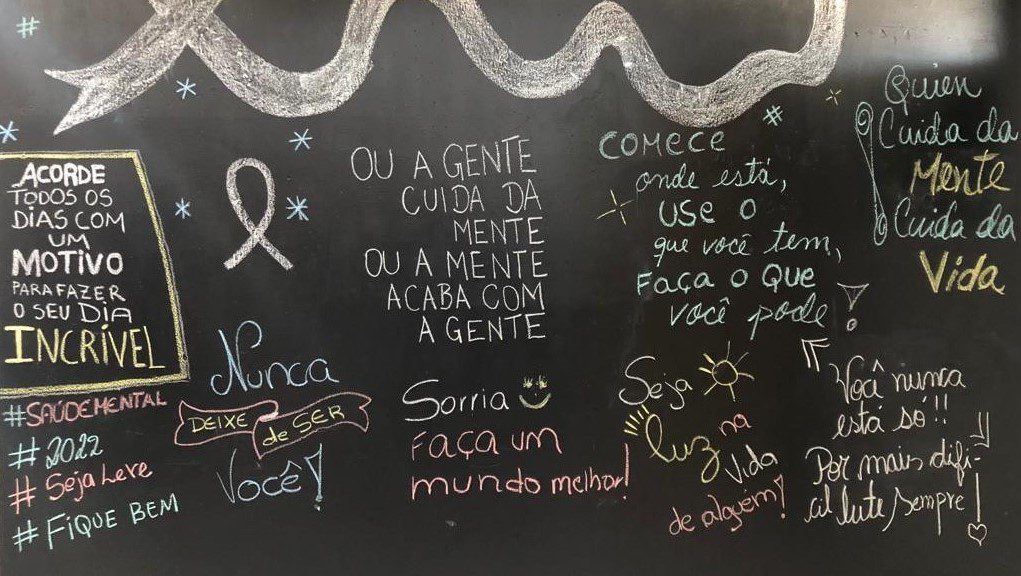 #
ACORDE
TODOS OS
DIAS COM
UM
MOTIVO
PARA FAZER
O SEU DIA
INCRÍVEL
#SAÚDEMENTAL
#2022
#SejaLeve
#FIQUE BEM
Nunca
DEIXE de SER
Você!
OU A GENTE
CUIDA DA
MENTE
OU A MENTE
ACABA COM
A GENTE
Sorria
FAÇA UM
mundo melhor!
#
COMECE
onde está,
USE O
que você tem,
FAÇA O QUE
você pode!
Seja
luz na
Vida
de alguem!
Quien
Cuida da
Mente
Cuida da
Vida
Você nunca
está só!!
Por mais difi-
cil lute, sempre!